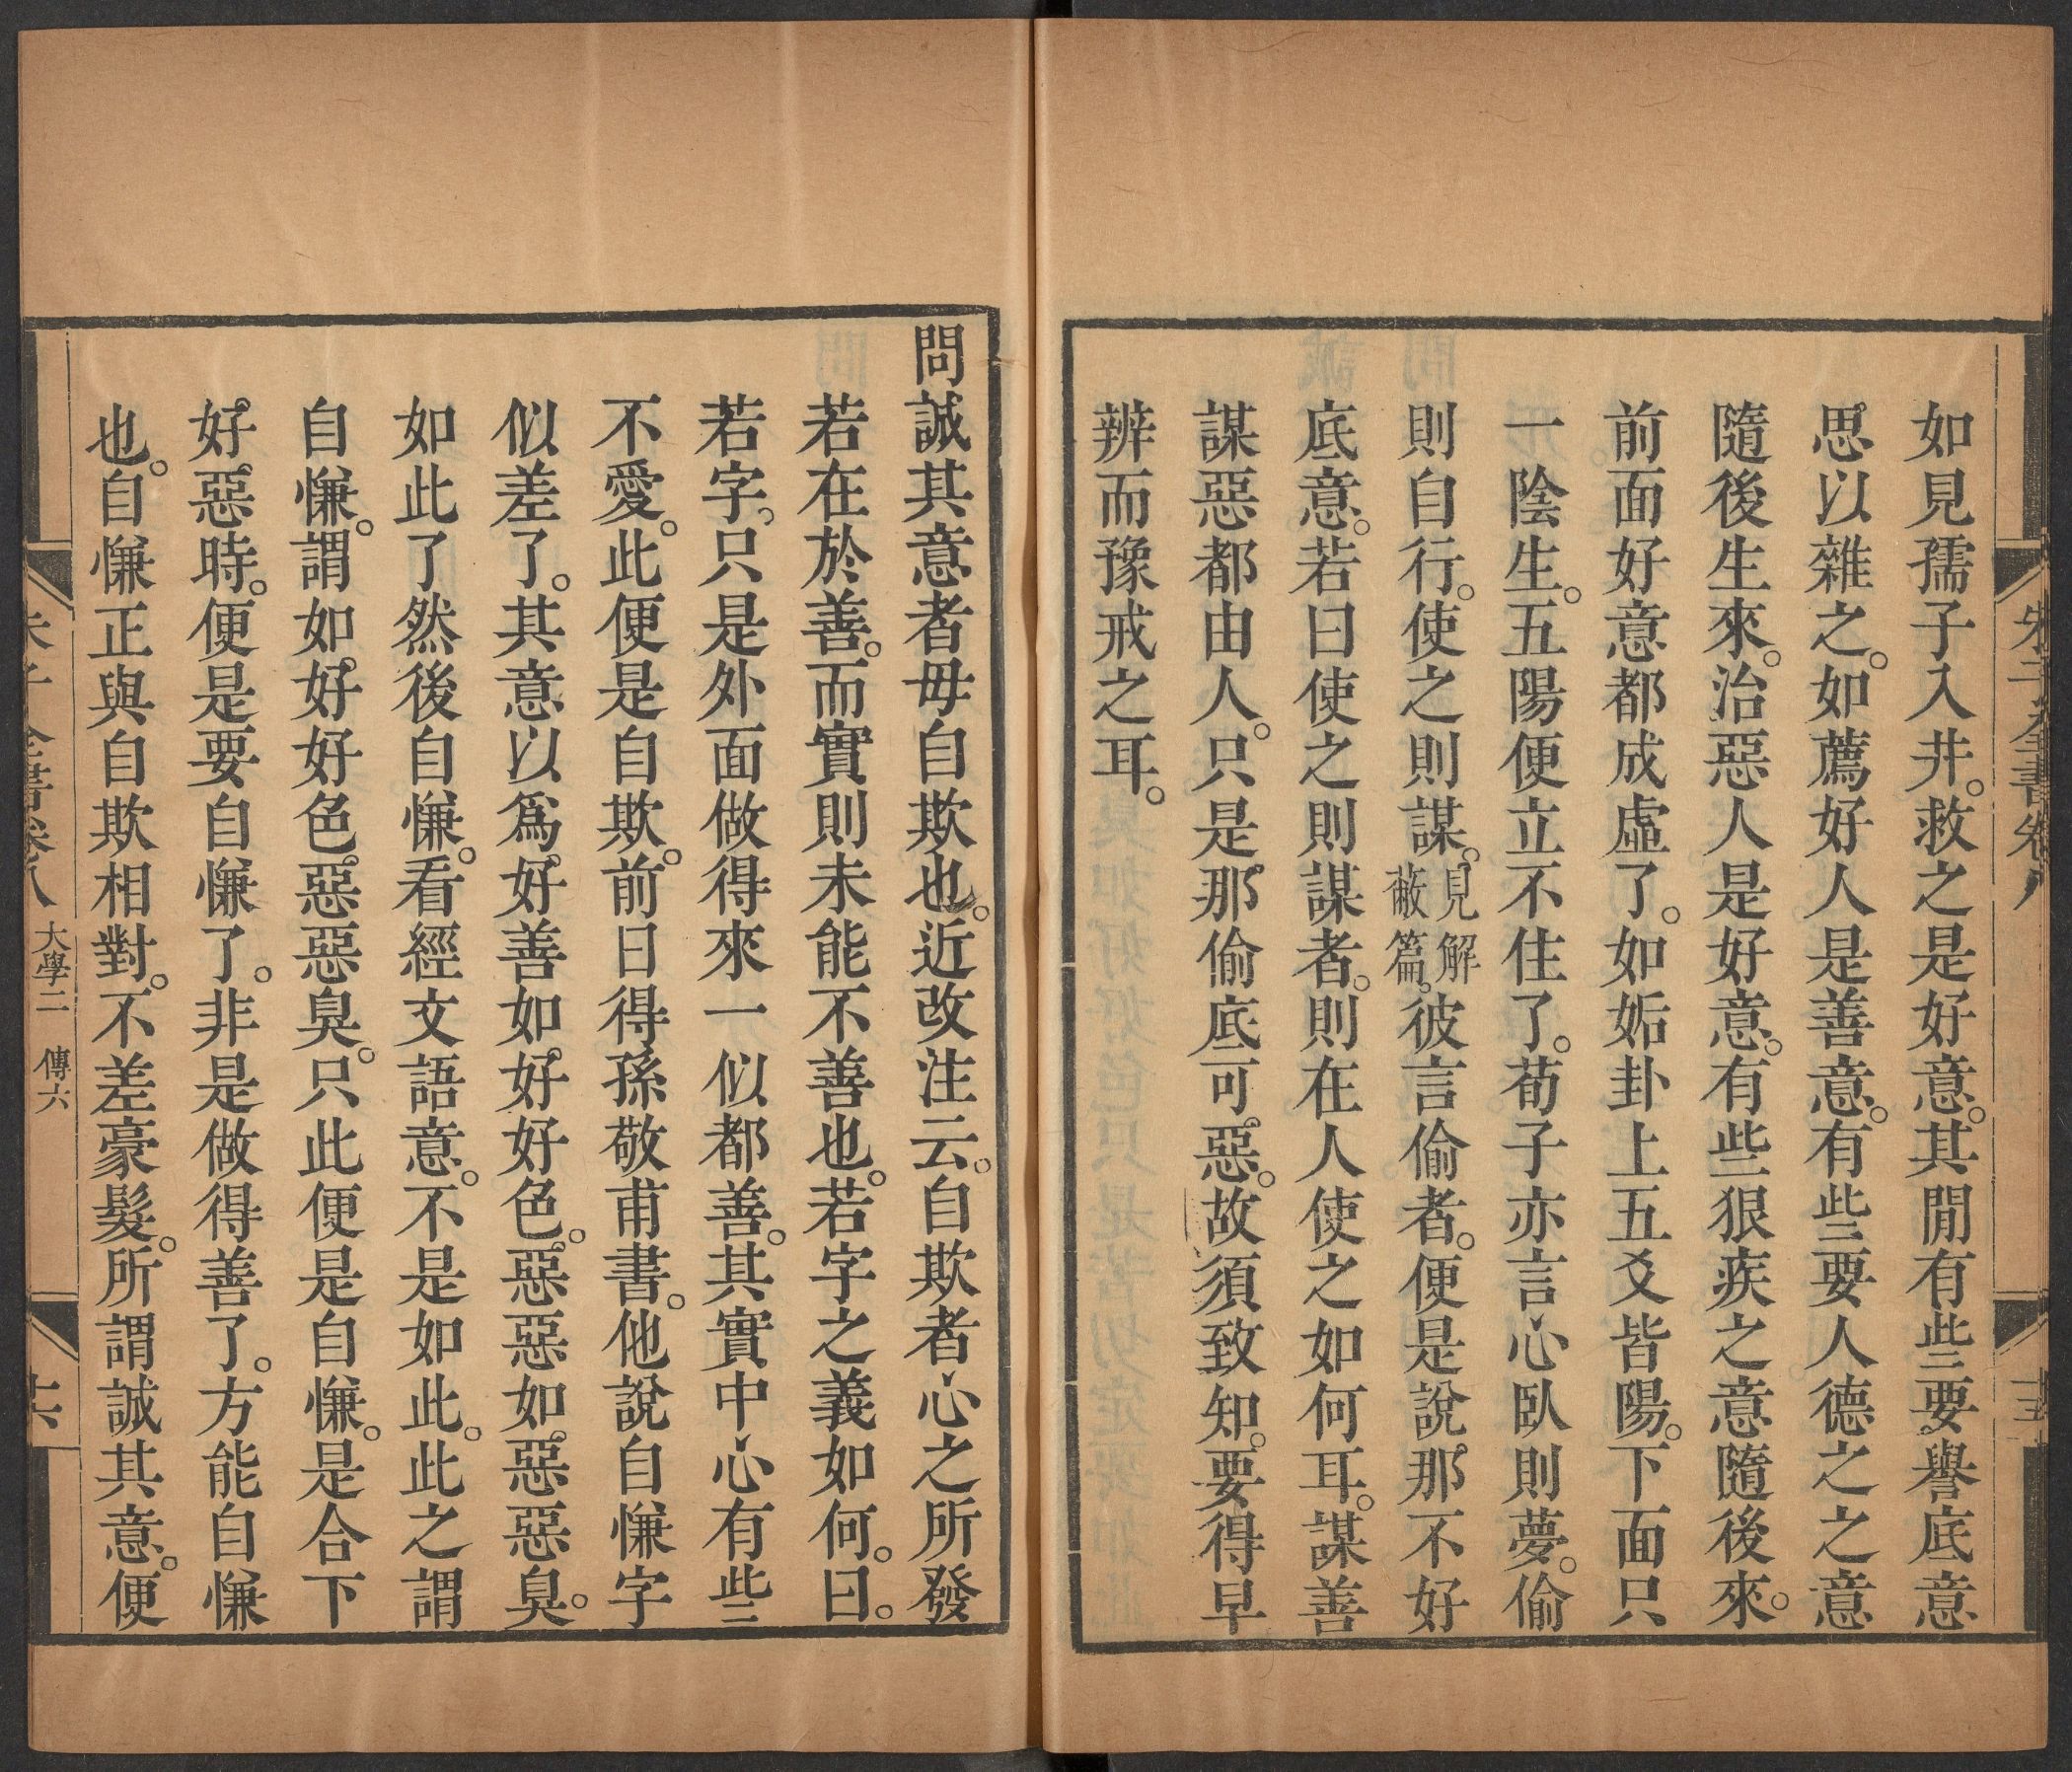 如見孺子入井。救之是好意。其閒有些要譽底意
思以雜之。如薦好人是善意。有些要人德之之意
隨後生來。治惡人是好意。有些狠疾之意隨後來。
前面好意都成虛了。如姤卦上五爻皆陽。下面只
一陰生。五陽便立不住了。荀子亦言心臥則夢。偷
則自行。使之則謀。見解蔽篇。彼言偷者。便是說那不好
底意。若曰使之則謀者。則在人使之如何耳。謀善
謀惡都由人。只是那偷底可惡。故須致知。要得早
辨而豫戒之耳。
朱子全書卷八
十五
問誠其意者毋自欺也。近改注云。自欺者心之所發
若在於善。而實則未能不善也。若字之義如何。曰。
若字只是外面做得來一似都善。其實中心有些
不愛。此便是自欺。前日得孫敬甫書。他說自慊字
似差了。其意以爲好善如好好色。惡惡如惡惡臭。
如此了然後自慊。看經文語意。不是如此。此之謂
自慊。謂如好好色。惡惡臭。只此便是自慊。是合下
好惡時。便是要自慊了。非是做得善了。方能自慊
也。自慊正與自欺相對。不差豪髮。所謂誠其意。便
朱子全書卷八 大學二 傳六
十六